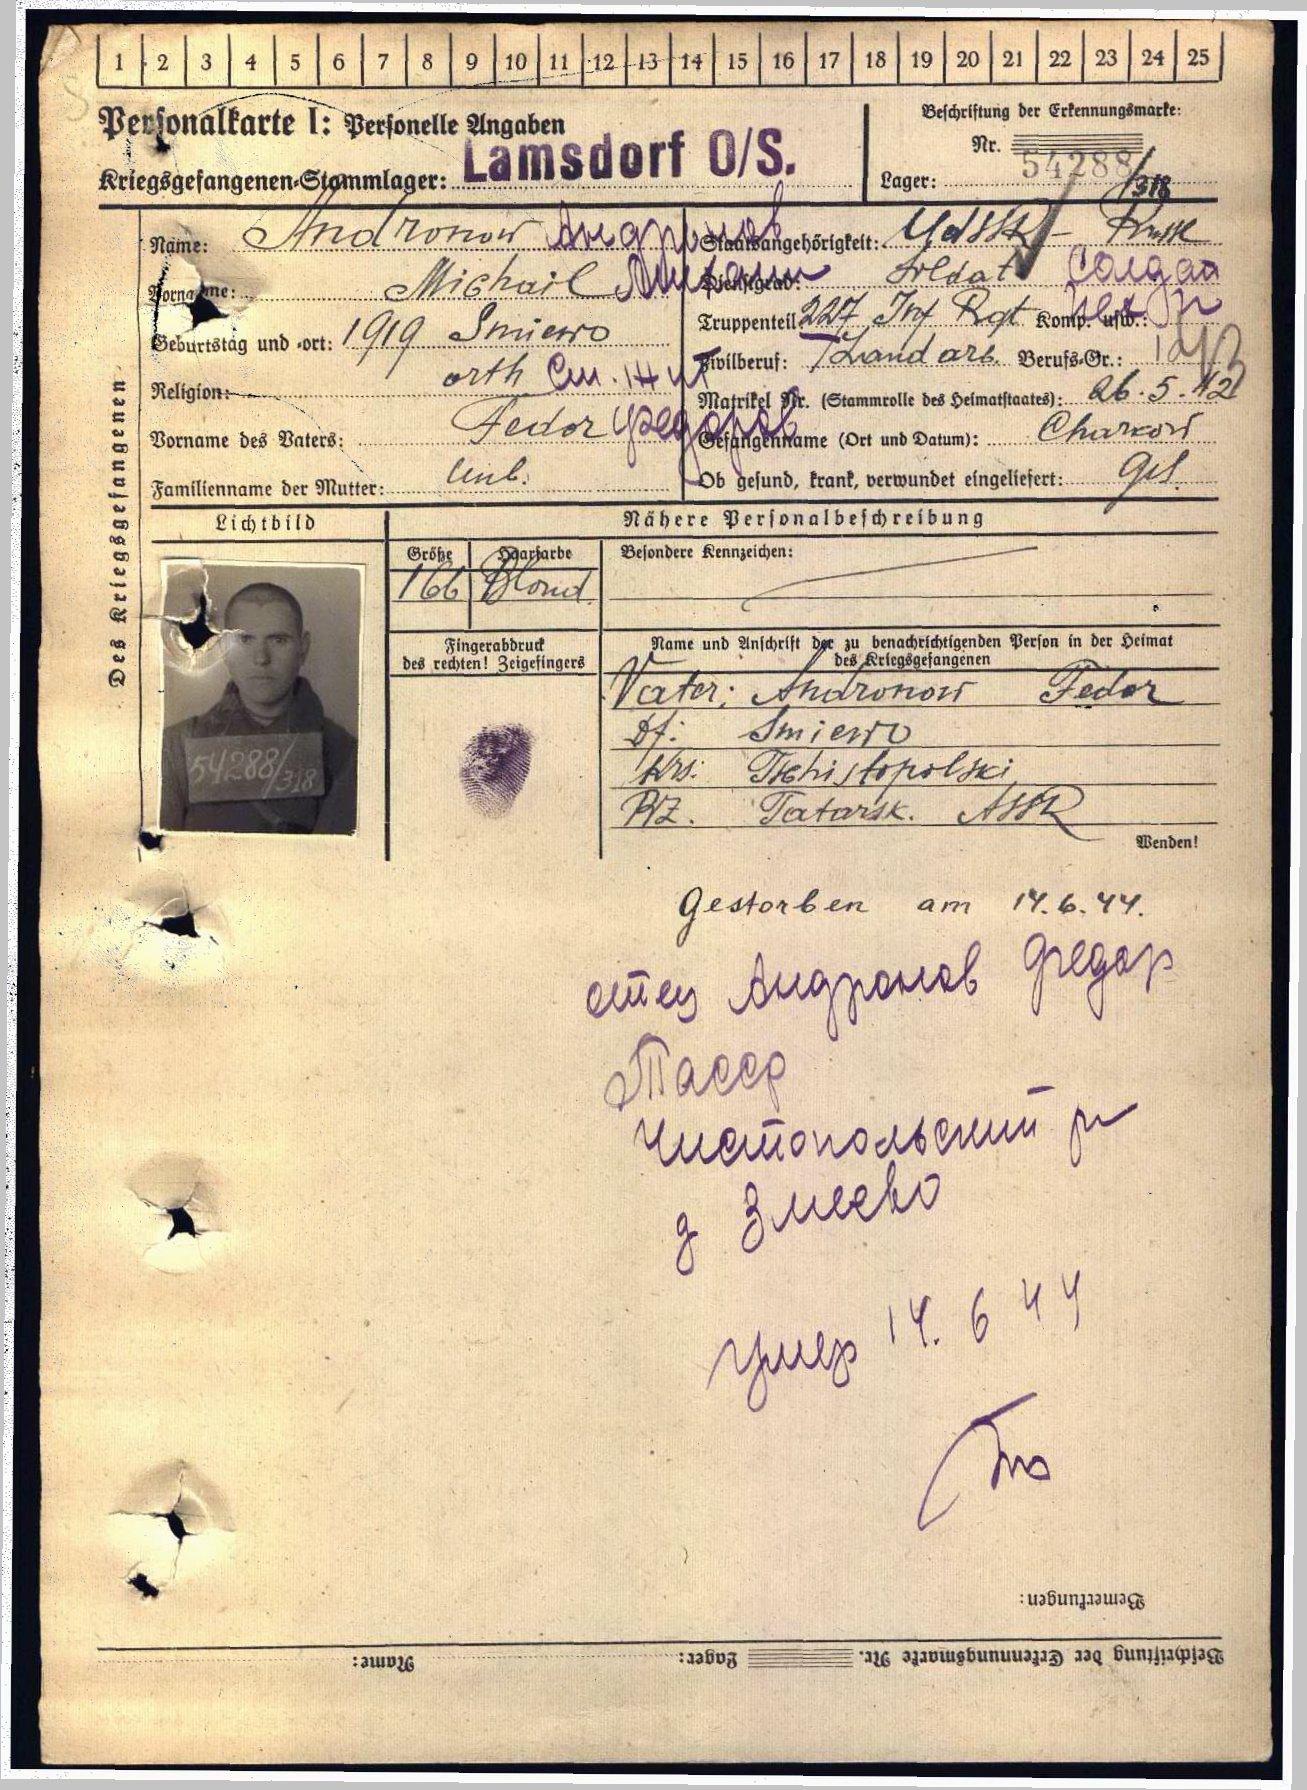 1 2 3 4 5 6 7 8 9 10 11 12 13 14 15 16 17 18 19 20 21 22 23 24 25
Personalkarte I: Personelle Angaben
Beschriftung der Erkennungsmarke:
Nr. 54288/318
Kriegsgefangenen-Stammlager: Lamsdorf O/S.
Lager:
Des Kriegsgefangenen
Name: Andronow Андронов
Vorname: Michail
Geburtstag und -ort: 1919 Smiewo
Religion: orth
Vorname des Vaters: Fedor Федоров
Familienname der Mutter: unb.
Staatsangehörigkeit: UdSSR - Russe
Dienstgrad: Soldat Солдат
Truppenteil 227 Inf Rgt Komp. usw.:
Zivilberuf: Landarb. Berufs-Gr.:
Matrikel Nr. (Stammrolle des Heimatstaates): 26.5.42
Gefangennahme (Ort und Datum): Charkow
Ob gesund, krank, verwundet eingeliefert: Ges.
Lichtbild
Nähere Personalbeschreibung
Größe Haarfarbe Besondere Kennzeichen:
166 Blond.
54288/318
Fingerabdruck
des rechten! Zeigefingers
Name und Anschrift der zu benachrichtigenden Person in der Heimat
des Kriegsgefangenen
Vater: Andronow Fedor
Df: Smiewo
Krs: Tschistopolski
BZ. Tatarsk. ASSR
Wenden!
Gestorben am 14.6.44.
отец Андронов Федор
Тасср
Чистопольский р
д Змеево
умер 14.6 44
Bemerkungen:
Beschriftung der Erkennungsmarke Nr. Lager: Name: